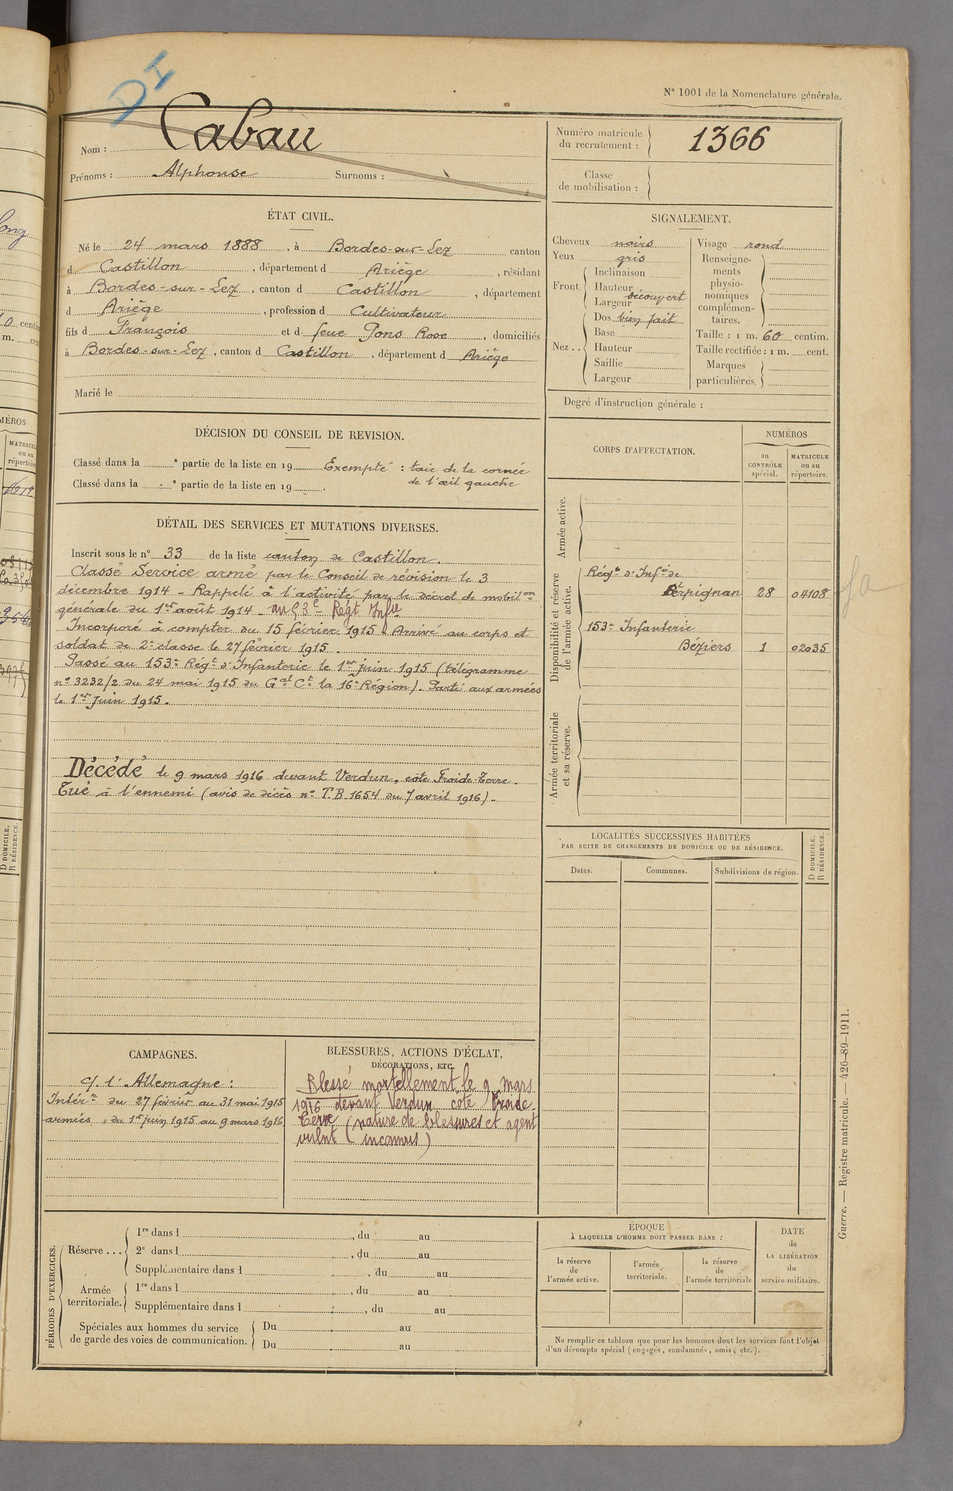 DI
N° 1001 de la Nomenclature générale.
Nom : Cabau
Prénoms : Alphonse Surnoms :
Numéro matricule du recrutement : 1366
Classe de mobilisation :
ÉTAT CIVIL.
Né le 24 mars 1888, à Bordes-sur-Lez canton
d Castillon, département d Ariège, résidant
à Bordes-sur-Lez, canton d Castillon, département
d Ariège, profession d Cultivateur
fils d François et d feue Pons Rose, domiciliés
à Bordes-sur-Lez, canton d Castillon, département d Ariège
Marié le
SIGNALEMENT.
Cheveux noirs
Yeux gris
Front. Inclinaison
Hauteur
Largeur découvert
Nez.. Dos bien fait
Base
Hauteur
Saillie
Largeur
Visage rond
Renseignements physionomiques complémentaires.
Taille : 1 m. 60 centim.
Taille rectifiée : 1 m. cent.
Marques particulières.
Degré d'instruction générale :
DÉCISION DU CONSEIL DE REVISION.
Classé dans la e partie de la liste en 19 Exempté : taie de la cornée
Classé dans la e partie de la liste en 19 . de l'œil gauche
DÉTAIL DES SERVICES ET MUTATIONS DIVERSES.
Inscrit sous le n° 33 de la liste canton de Castillon.
Classé Service armé par le Conseil de révision le 3
décembre 1914 - Rappelé à l'activité par le décret de mobilon
générale du 1er août 1914 - au 53e Regt Infie
Incorporé à compter du 15 février 1915. Arrivé au corps et
soldat de 2e classe le 27 février 1915.
Passé au 153e Regt d'Infanterie le 1er juin 1915 (télégramme
n° 3232/2 du 24 mai 1915 du Gal Ct la 16e Région). Parti aux armées
le 1er juin 1915.
Décédé le 9 mars 1916 devant Verdun, côte Froide Terre.
Tué à l'ennemi (avis de décès n° T.B 1654 du 7 avril 1916).
CORPS D'AFFECTATION.
NUMÉROS
au CONTRÔLE spécial.
MATRICULE ou au répertoire.
Armée active.
Disponibilité et réserve de l'armée active.
Régt d'Infie de
Perpignan 28 04108
153e Infanterie
Béziers 1 02035
Armée territoriale et sa réserve.
LOCALITÉS SUCCESSIVES HABITÉES
PAR SUITE DE CHANGEMENTS DE DOMICILE OU DE RÉSIDENCE.
Dates.
Communes.
Subdivisions de région.
D DOMICILE.
R RÉSIDENCE.
CAMPAGNES.
C/ l'Allemagne :
Intérr du 27 février au 31 mai 1915
armées du 1er juin 1915 au 9 mars 1916
BLESSURES, ACTIONS D'ÉCLAT,
DÉCORATIONS, ETC.
Blessé mortellement le 9 mars
1916 devant Verdun cote Froide
Terre (nature de blessures et agent
vulnt (inconnus)
PÉRIODES D'EXERCICES.
Réserve ...
1re dans l , du au
2e dans l , du au
Supplémentaire dans l , du au
Armée territoriale.
1re dans l , du au
Supplémentaire dans l , du au
Spéciales aux hommes du service
de garde des voies de communication.
Du au
Du au
ÉPOQUE
À LAQUELLE L'HOMME DOIT PASSER DANS :
la réserve de l'armée active.
l'armée territoriale.
la réserve de l'armée territoriale
DATE de LA LIBÉRATION du service militaire.
Ne remplir ce tableau que pour les hommes dont les services font l'objet
d'un décompte spécial (engagés, condamnés, omis, etc.).
Guerre. — Registre matricule. — 426-89-1911.